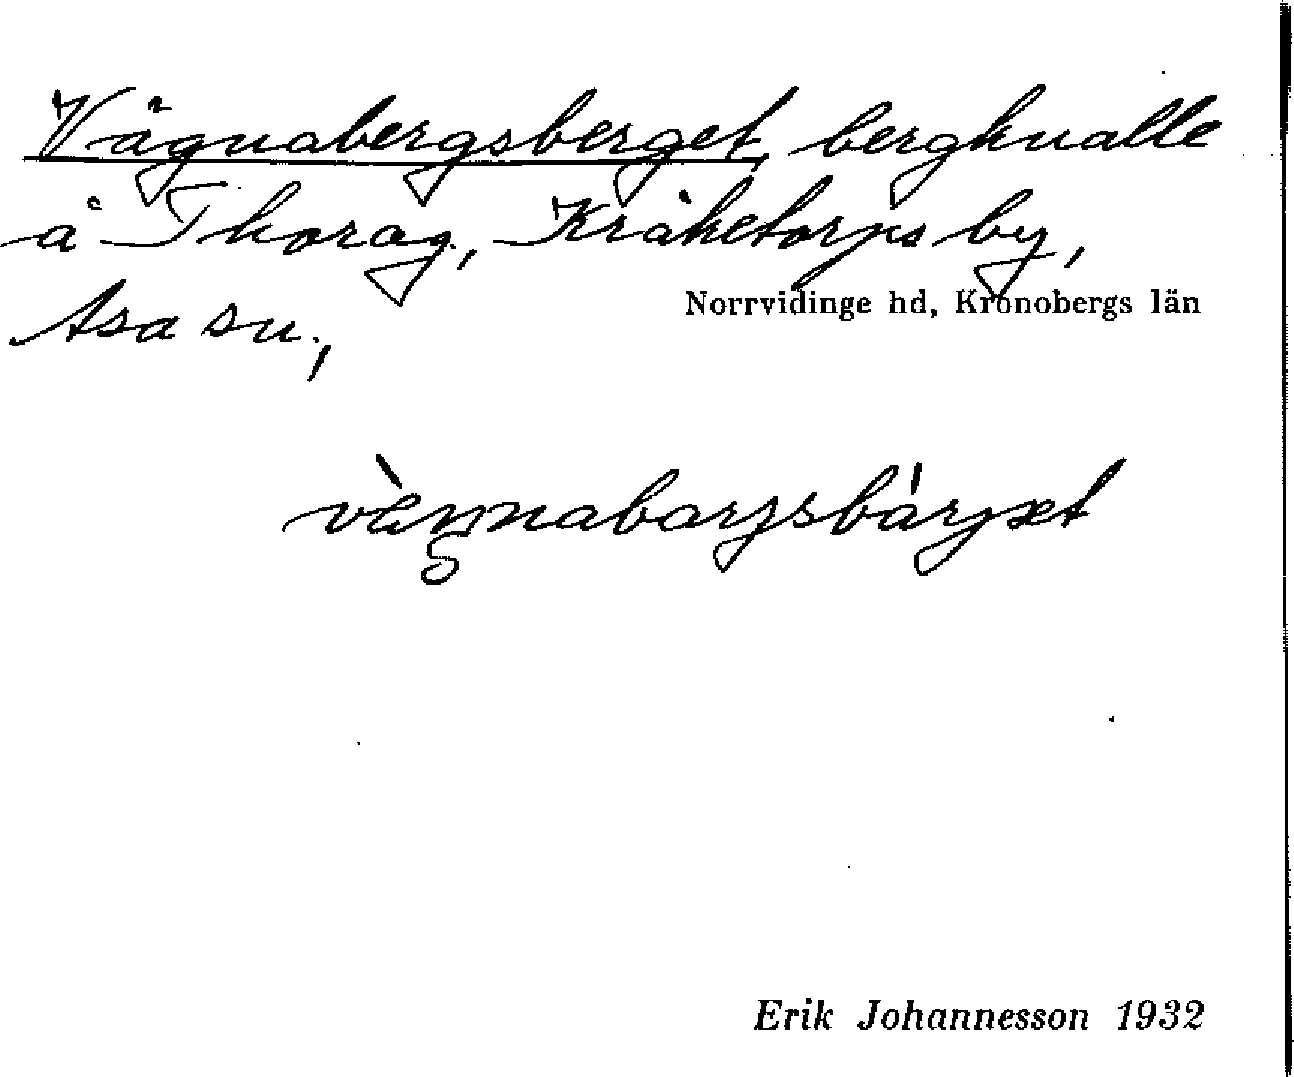 Vågnabergsberget, bergknalle
å Thorag, Kråketorps by,
Asa sn.,
Norrvidinge hd, Kronobergs län
Erik Johannesson 1932